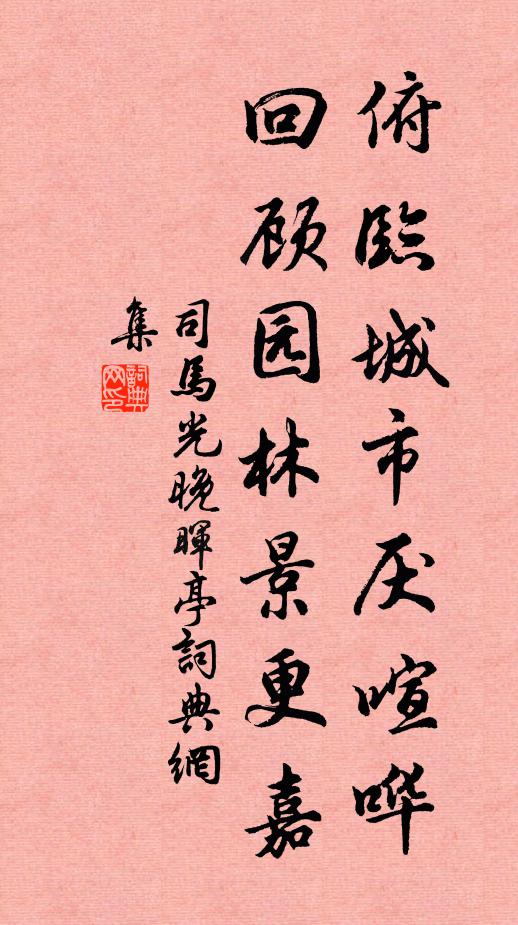 俯临城市厌喧哗
回顾园林景更嘉
司馬光晚暉亭詞典網
集
詞典
网印